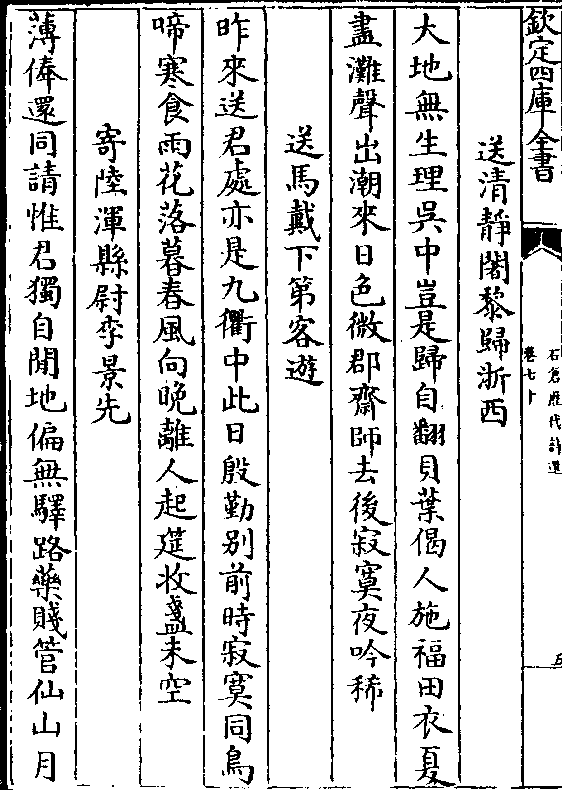 欽定四庫全書
石倉歷代詩選
卷七十
五
送清靜闍黎歸浙西
大地無生理吳中豈是歸自翻貝葉偈人施福田衣夏
盡灘聲出潮來日色微郡齋師去後寂寞夜吟稀
送馬戴下第客遊
昨來送君處亦是九衢中此日殷勤别前時寂寞同鳥
啼寒食雨花落暮春風向晚離人起筵收盞未空
寄陸渾縣尉李景先
薄俸還同請惟君獨自閒地偏無驛路藥賤管仙山月